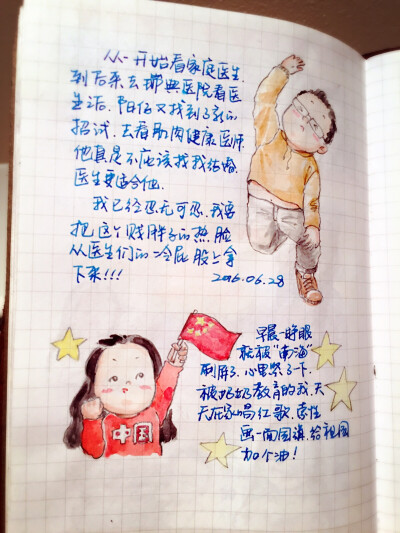 从一开始看家庭医生
到后来去瑞典医院看医
生话，阳仔又找到了新的
招试，去看肌肉健康医师
他真是不应该找我结婚
医生更适合他.
我已经忍无可忍.我要
把这个贱胖子的热脸
从医生们的冷屁股上拿
下来!!!
2016.06.28
早晨一睁眼
就被“南海”
刷屏了.心里紧了一下.
被妈妈教育的我,天
天在家唱红歌.索性
画一面国旗.给祖国
加个油!
中国